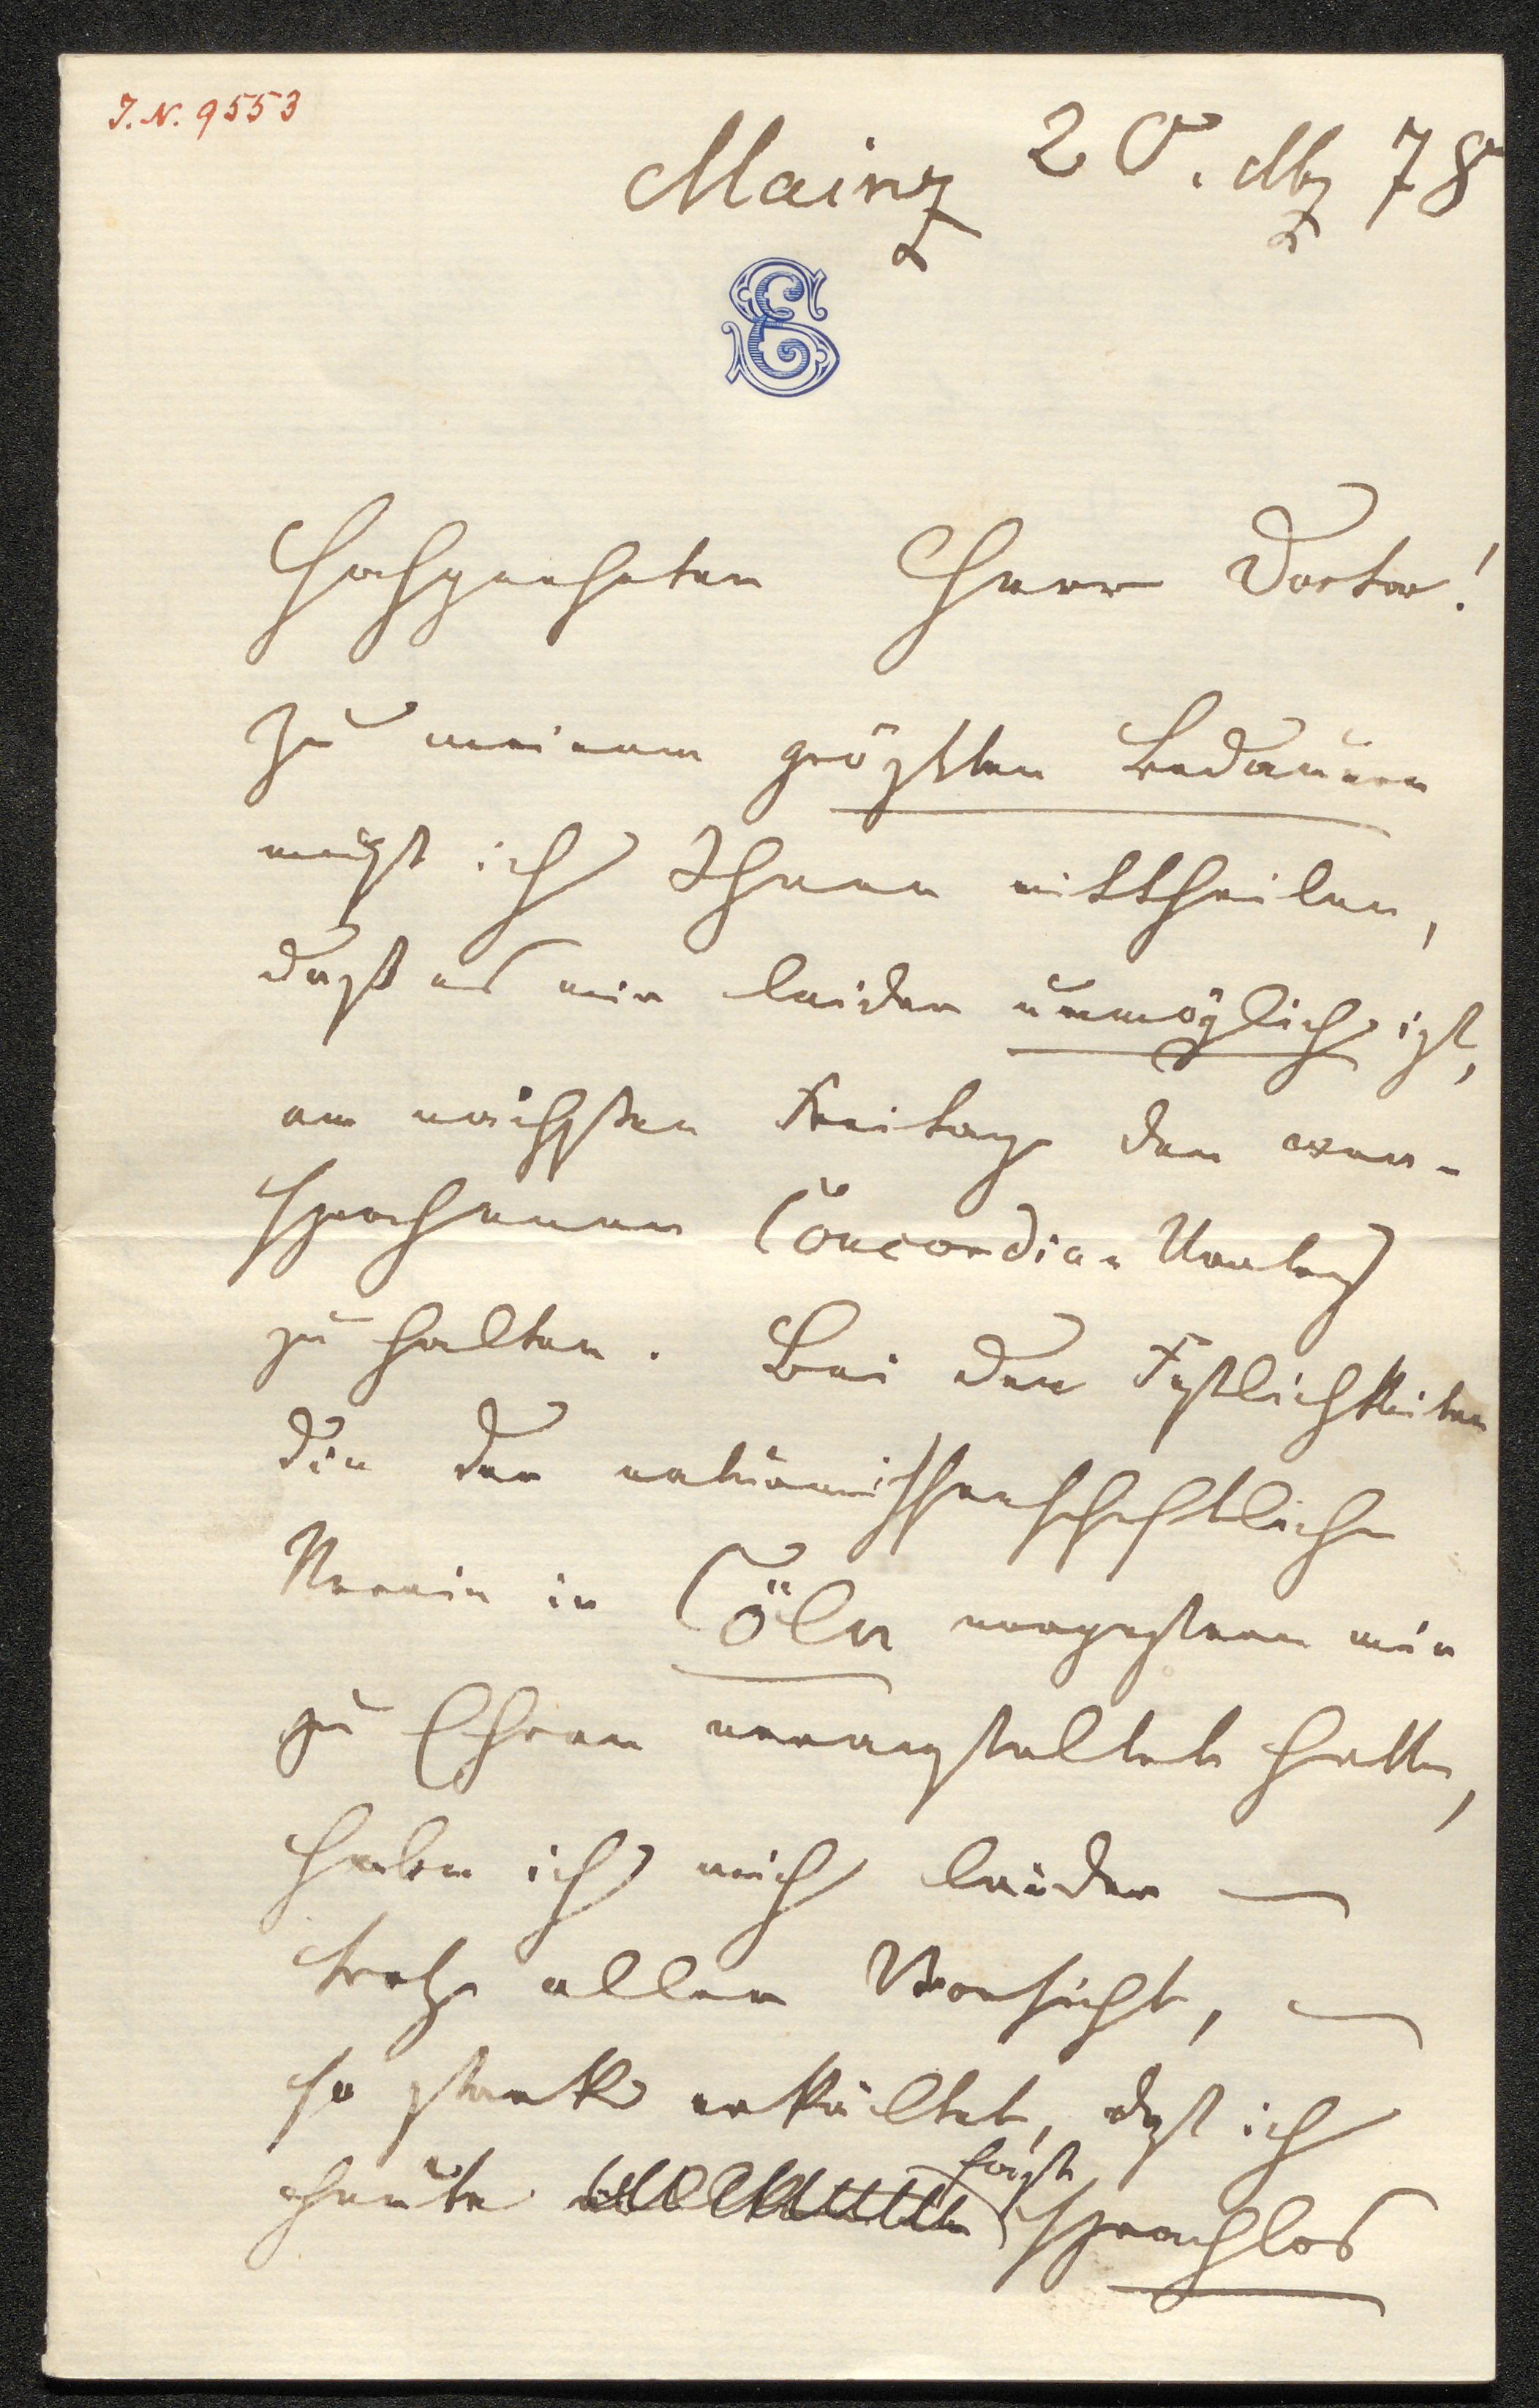 J.N. 9553
Mainz 20. Mz 78
Hochgeehrter Herr Doctor!
Zu meinem größten Bedauern
muß ich Ihnen mittheilen,
daß es mir leider unmöglich ist,
am nächsten Freitag den ver-
sprochenen Concordia-Vortrag
zu halten. Bei den Festlichkeiten
die der naturwissenschaftliche
Verein in Cöln vorgestern mir
zu Ehren veranstaltet hatte,
habe ich mich leider —
trotz aller Vorsicht, —
so stark erkältet, daß ich
heute fast sprachlos